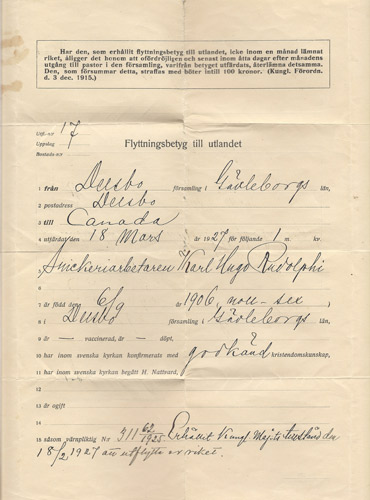 Har den, som erhållit flyttningsbetyg till utlandet, icke inom en månad lämnat
riket, åligger det honom att ofördröjligen och senast inom åtta dagar efter månadens
utgång till pastor i den församling, varifrån betyget utfärdats, återlämna detsamma.
Den, som försummar detta, straffas med böter intill 100 kronor. (Kungl. Förordn.
d. 3 dec. 1915.)
Utfl.-n:r 17
Uppslag
Bostads-n:r
Flyttningsbetyg till utlandet
1 från Delsbo församling i Gävleborgs län,
2 postadress Delsbo
3 till Canada
4 utfärdat den 18 Mars år 1927 för följande 1 m. kv.
5 Snickeriarbetaren Karl Hugo Rudolphi
6
7 är född den 6/9 år 1906, nou-sex
8 i Delsbo församling i Gävleborgs län,
9 är — vaccinerad, är — döpt,
10 har inom svenska kyrkan konfirmerats med godkänd kristendomskunskap,
11 har inom svenska kyrkan begått H. Nattvard,
12
13 är ogift
14
15 såsom värnpliktig N:r 311 62/1925. Erhållit Kungl. Maj:ts tillstånd den
18/2 1927 att utflytta ur riket.